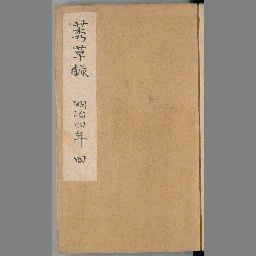 莠草録 明治四年 四